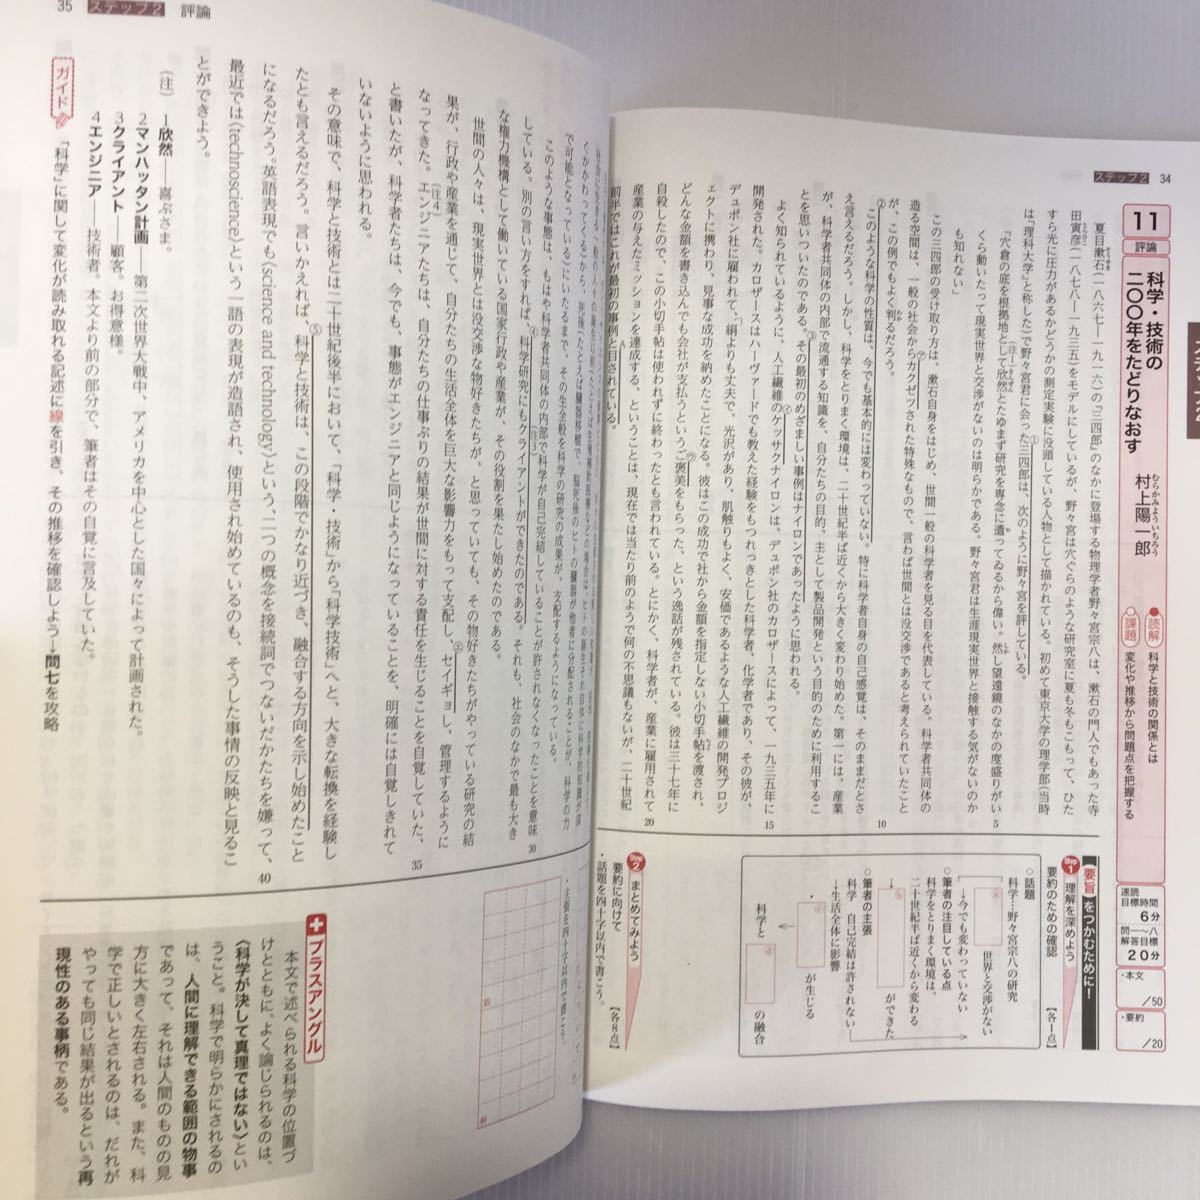 ステップ2 34
11
評論
科学・技術の
二〇〇年をたどりなおす
村上陽一郎
むらかみよういちろう
読解 科学と技術の関係とは
課題 変化や推移から問題点を把握する
速読
目標時間
6分
問一〜八
解答目標
20分
・本文
/50
・要約
/20
夏目漱石(一八六七―一九一六)の『三四郎』のなかに登場する物理学者野々宮宗八は、漱石の門人でもあった寺
田寅彦(一八七八―一九三五)をモデルにしているが、野々宮は穴ぐらのような研究室に夏も冬もこもって、ひた
すら光に圧力があるかどうかの測定実験に没頭している人物として描かれている。初めて東京大学の理学部(当時
は「理科大学」と称した)で野々宮君に会った三四郎は、次のように野々宮を評している。
「穴倉の底を根拠地として欣然とたゆまず研究を専念に遣ってゐるから偉い。然し望遠鏡のなかの度盛りがい
くら動いたって現実世界と交渉がないのは明らかである。野々宮君は生涯現実世界と接触する気がないのか
も知れない」
この三四郎の受け取り方は、漱石自身をはじめ、世間一般の科学者を見る目を代表している。科学者共同体の
造る空間は、一般の社会からカクゼツされた特殊なもので、言わば世間とは没交渉であると考えられていたこと
が、この例でもよく判るだろう。
このような科学の性質は、今でも基本的には変わっていない。特に科学者自身の自己感覚は、そのままだとさ
え言えるだろう。しかし、科学をとりまく環境は、二十世紀半ば近くから大きく変わり始めた。第一には、産業
が、科学者共同体の内部で流通する知識を、自分たちの目的、主として製品開発という目的のために利用するこ
とを思いついたのである。その最初のめざましい事例はナイロンであったように思われる。
よく知られているように、人工繊維のケッサクナイロンは、デュポン社のカロザースによって、一九三五年に
開発された。カロザースはハーヴァードでも教えた経験をもつれっきとした科学者、化学者であり、その彼が、
デュポン社に雇われて、「絹よりも丈夫で、光沢があり、肌触りもよく、安価であるような人工繊維の開発プロジ
ェクトに携わり、見事な成功を納めたことになる。彼はこの成功で社から金額を指定しない小切手帖を渡され、
どんな金額を書き込んでも会社が支払うというご褒美をもらった、という逸話が残されている。彼は三十七年に
自殺したので、この小切手帖は使われずに終わったとも言われている。とにかく、科学者が、産業に雇用されて
産業の与えたミッションを達成する、ということは、現在では当たり前のようで何の不思議もないが、二十世紀
前半ではこれが最初の事例と目されている。
5
10
15
20
要旨をつかむために!
Step1 理解を深めよう
要約のための確認
【各1点】
○話題
科学…野々宮宗八の研究
a 世界と交渉がない
→今でも変わっていない
○筆者の注目している点
科学をとりまく環境は、
二十世紀半ば近くから変わる
→ b ができた
○筆者の主張
科学 自己完結は許されない
→生活全体に影響
c が生じる
科学と d の融合
Step2 まとめてみよう
要約に向けて
【各8点】
・話題を四十字以内で書こう。
35 ステップ2 評論
で可能となっている)にいたるまで、その生全般を科学の研究の成果が、支配するようになっている。
このような事態は、もはや科学者共同体の内部で科学が自己完結していることが許されなくなったことを意味
している。別の言い方をすれば、科学研究にもクライアントができたのである。それも、社会のなかで最も大き
な権力機構として働いている国家行政や産業が、その役割を果たし始めたのである。
世間の人々は、現実世界とは没交渉な物好きたちが、と思っていても、その物好きたちがやっている研究の結
果が、行政や産業を通じて、自分たちの生活全体を巨大な影響力をもって支配し、セイギョし、管理するように
なってきた。エンジニアたちは、自分たちの仕事ぶりの結果が世間に対する責任を生じることを自覚していた、
と書いたが、科学者たちは、今でも、事態がエンジニアと同じようになっていることを、明確には自覚しきれて
いないように思われる。
その意味で、科学と技術とは二十世紀後半において、「科学・技術」から「科学技術」へと、大きな転換を経験し
たとも言えるだろう。言いかえれば、科学と技術は、この段階でかなり近づき、融合する方向を示し始めたこと
になるだろう。英語表現でも〈science and technology〉という、二つの概念を接続詞でつないだかたちを嫌って、
最近では〈technoscience〉という一語の表現が造語され、使用され始めているのも、そうした事情の反映と見るこ
とができよう。
30
35
40
(注) 1欣然――喜ぶさま。
2マンハッタン計画――第二次世界大戦中、アメリカを中心とした国々によって計画された。
3クライアント――顧客。お得意様。
4エンジニア――技術者。本文より前の部分で、筆者はその自覚に言及していた。
ガイド 「科学」に関して変化が読み取れる記述に線を引き、その推移を確認しよう→問七を攻略
・主張を四十字以内で書こう。
プラスアングル
本文で述べられる科学の位置づ
けとともに、よく論じられるのは、
〈科学が決して真理ではない〉とい
うこと。科学で明らかにされるの
は、人間に理解できる範囲の物事
であって、それは人間のものの見
方に大きく左右される。また、科
学で正しいとされるのは、だれが
やっても同じ結果が出るという再
現性のある事柄である。